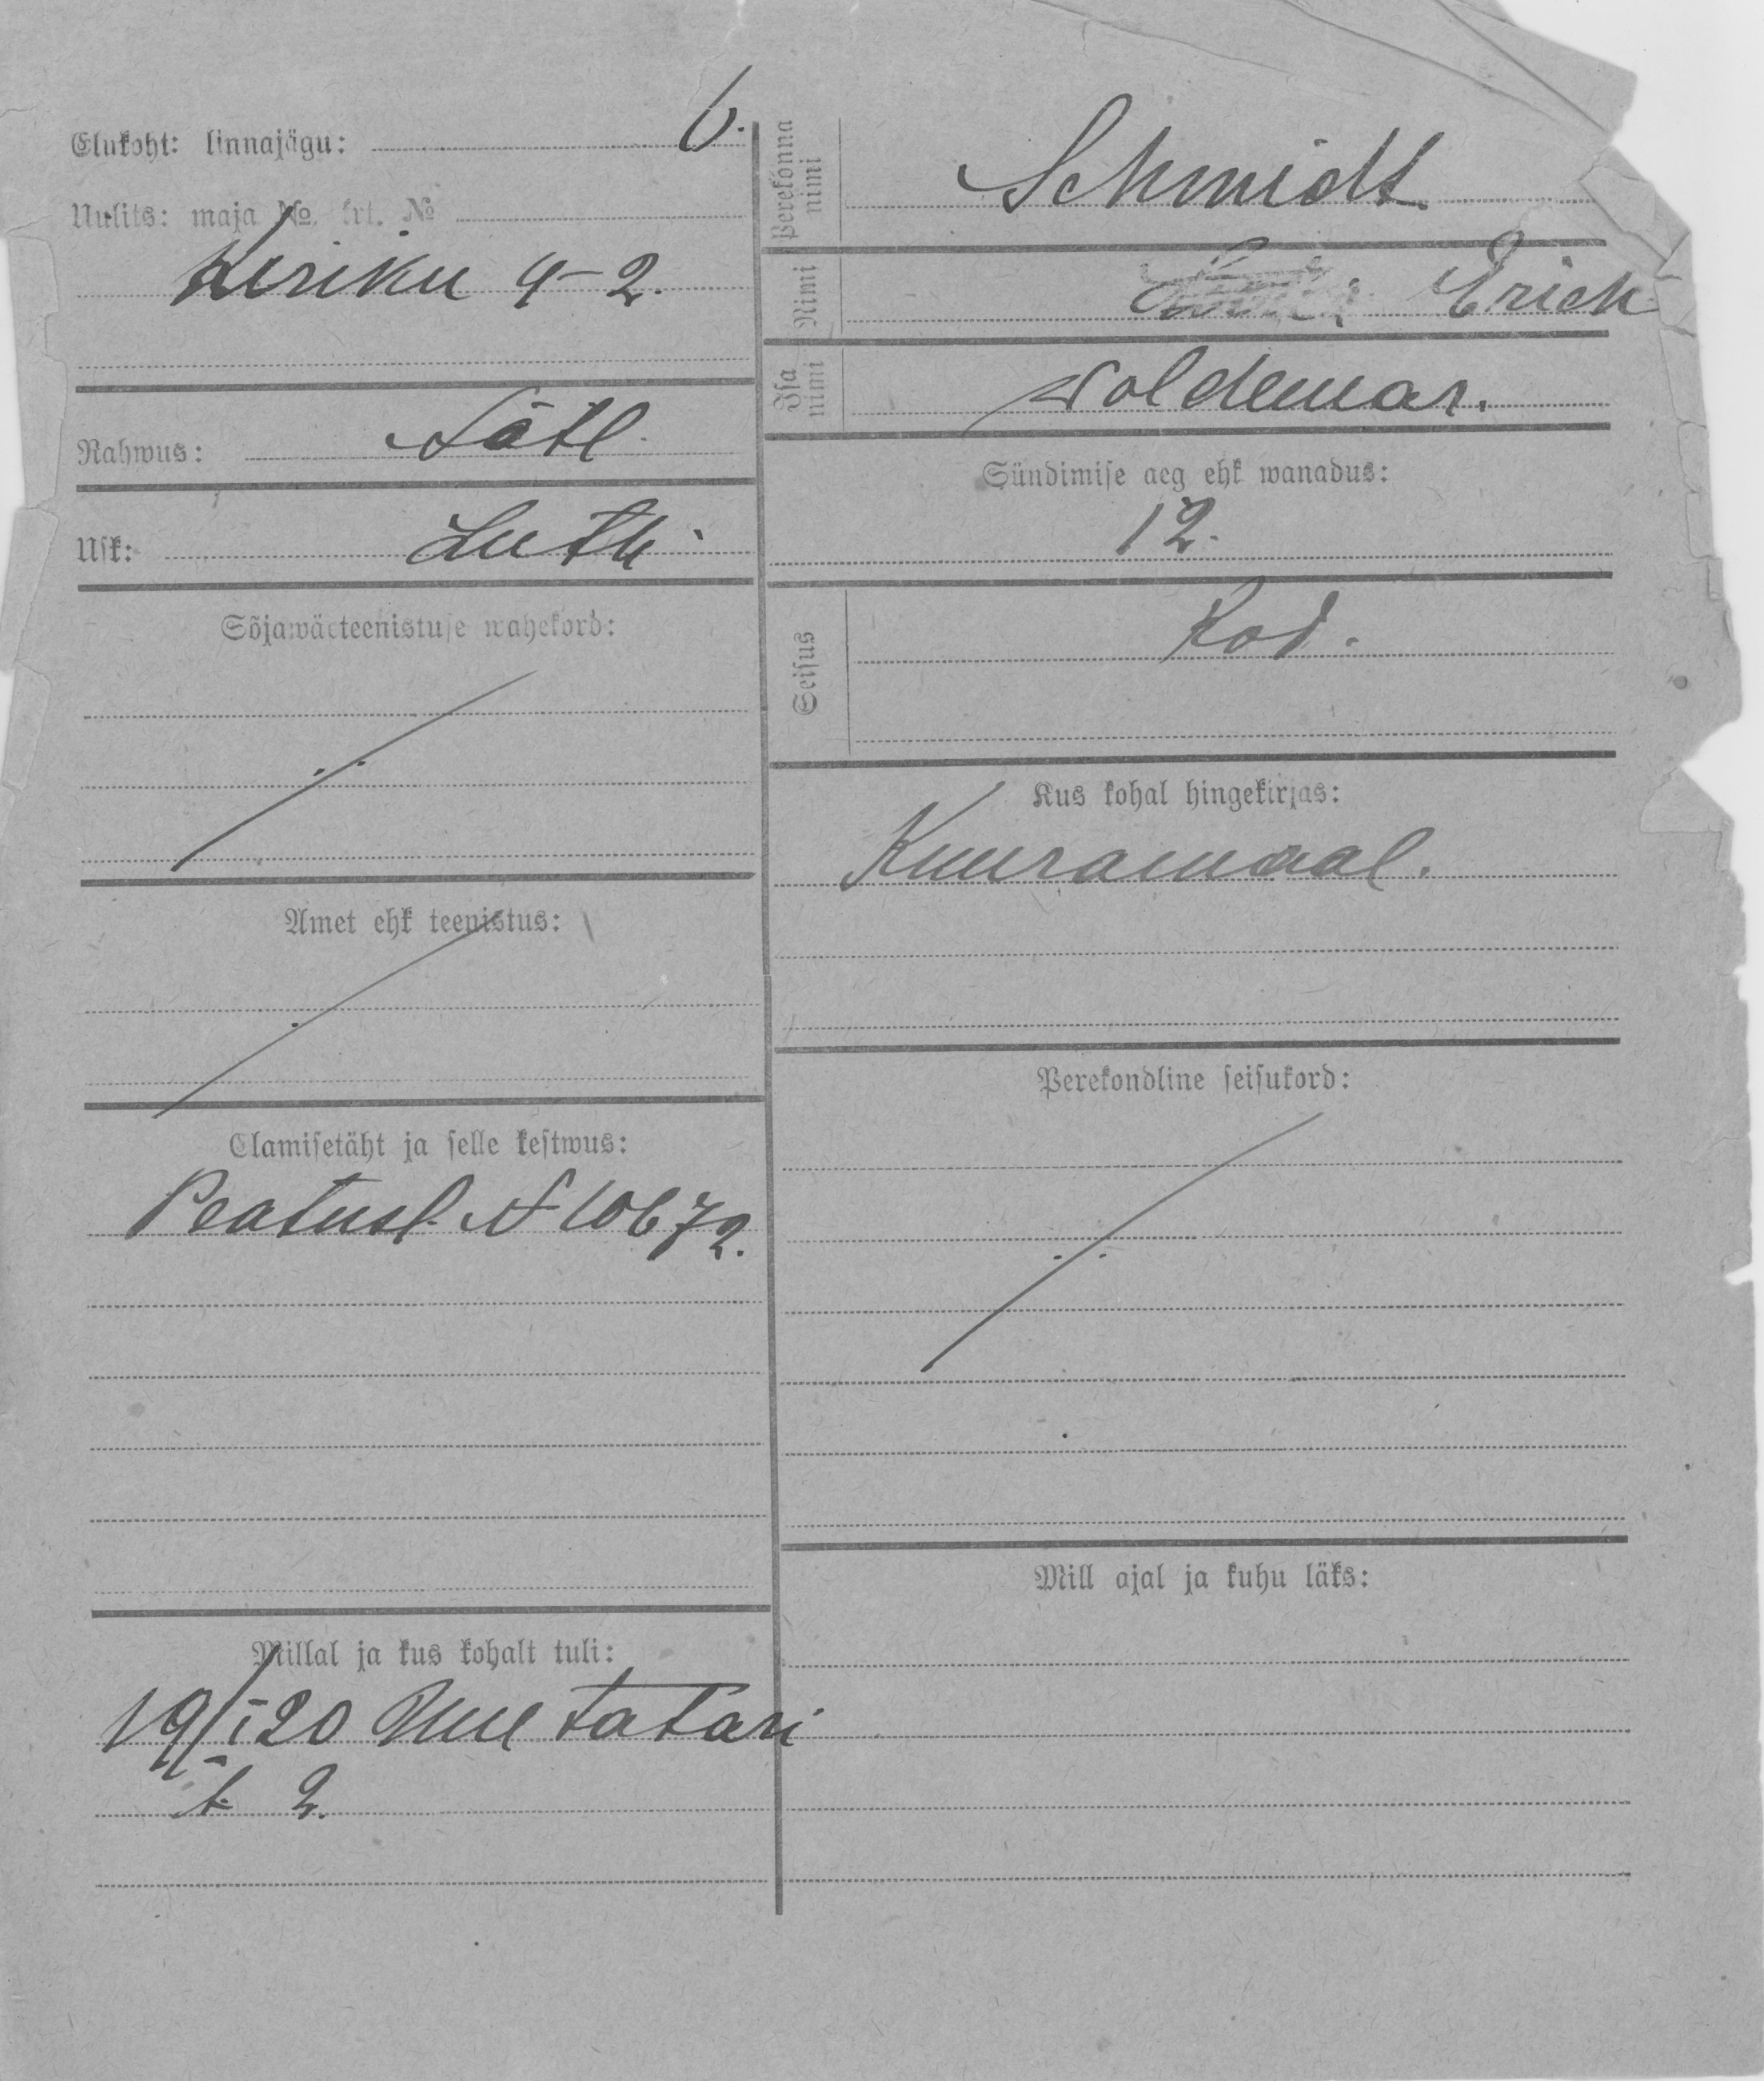 Elukoht: linnajägu: 6.
Uulits: maja № krt. №
Kiriku 4-2.
Rahwus: Lätl.
Usk: Luth.
Sõjawäeteenistuse wahekord:
Amet ehk teenistus:
Elamisetäht ja selle kestwus:
Peatusl. N 10672.
Millal ja kus kohalt tuli:
19/I 20 Uue Tatari
t. 2.
Perekonna nimi Schmidt
Nimi Erich
Isa nimi Woldemar.
Sündimise aeg ehk wanadus:
12.
Seisus Kod.
Kus kohal hingekirjas:
Kuuramaal.
Perekondline seisukord:
Mill ajal ja kuhu läks: